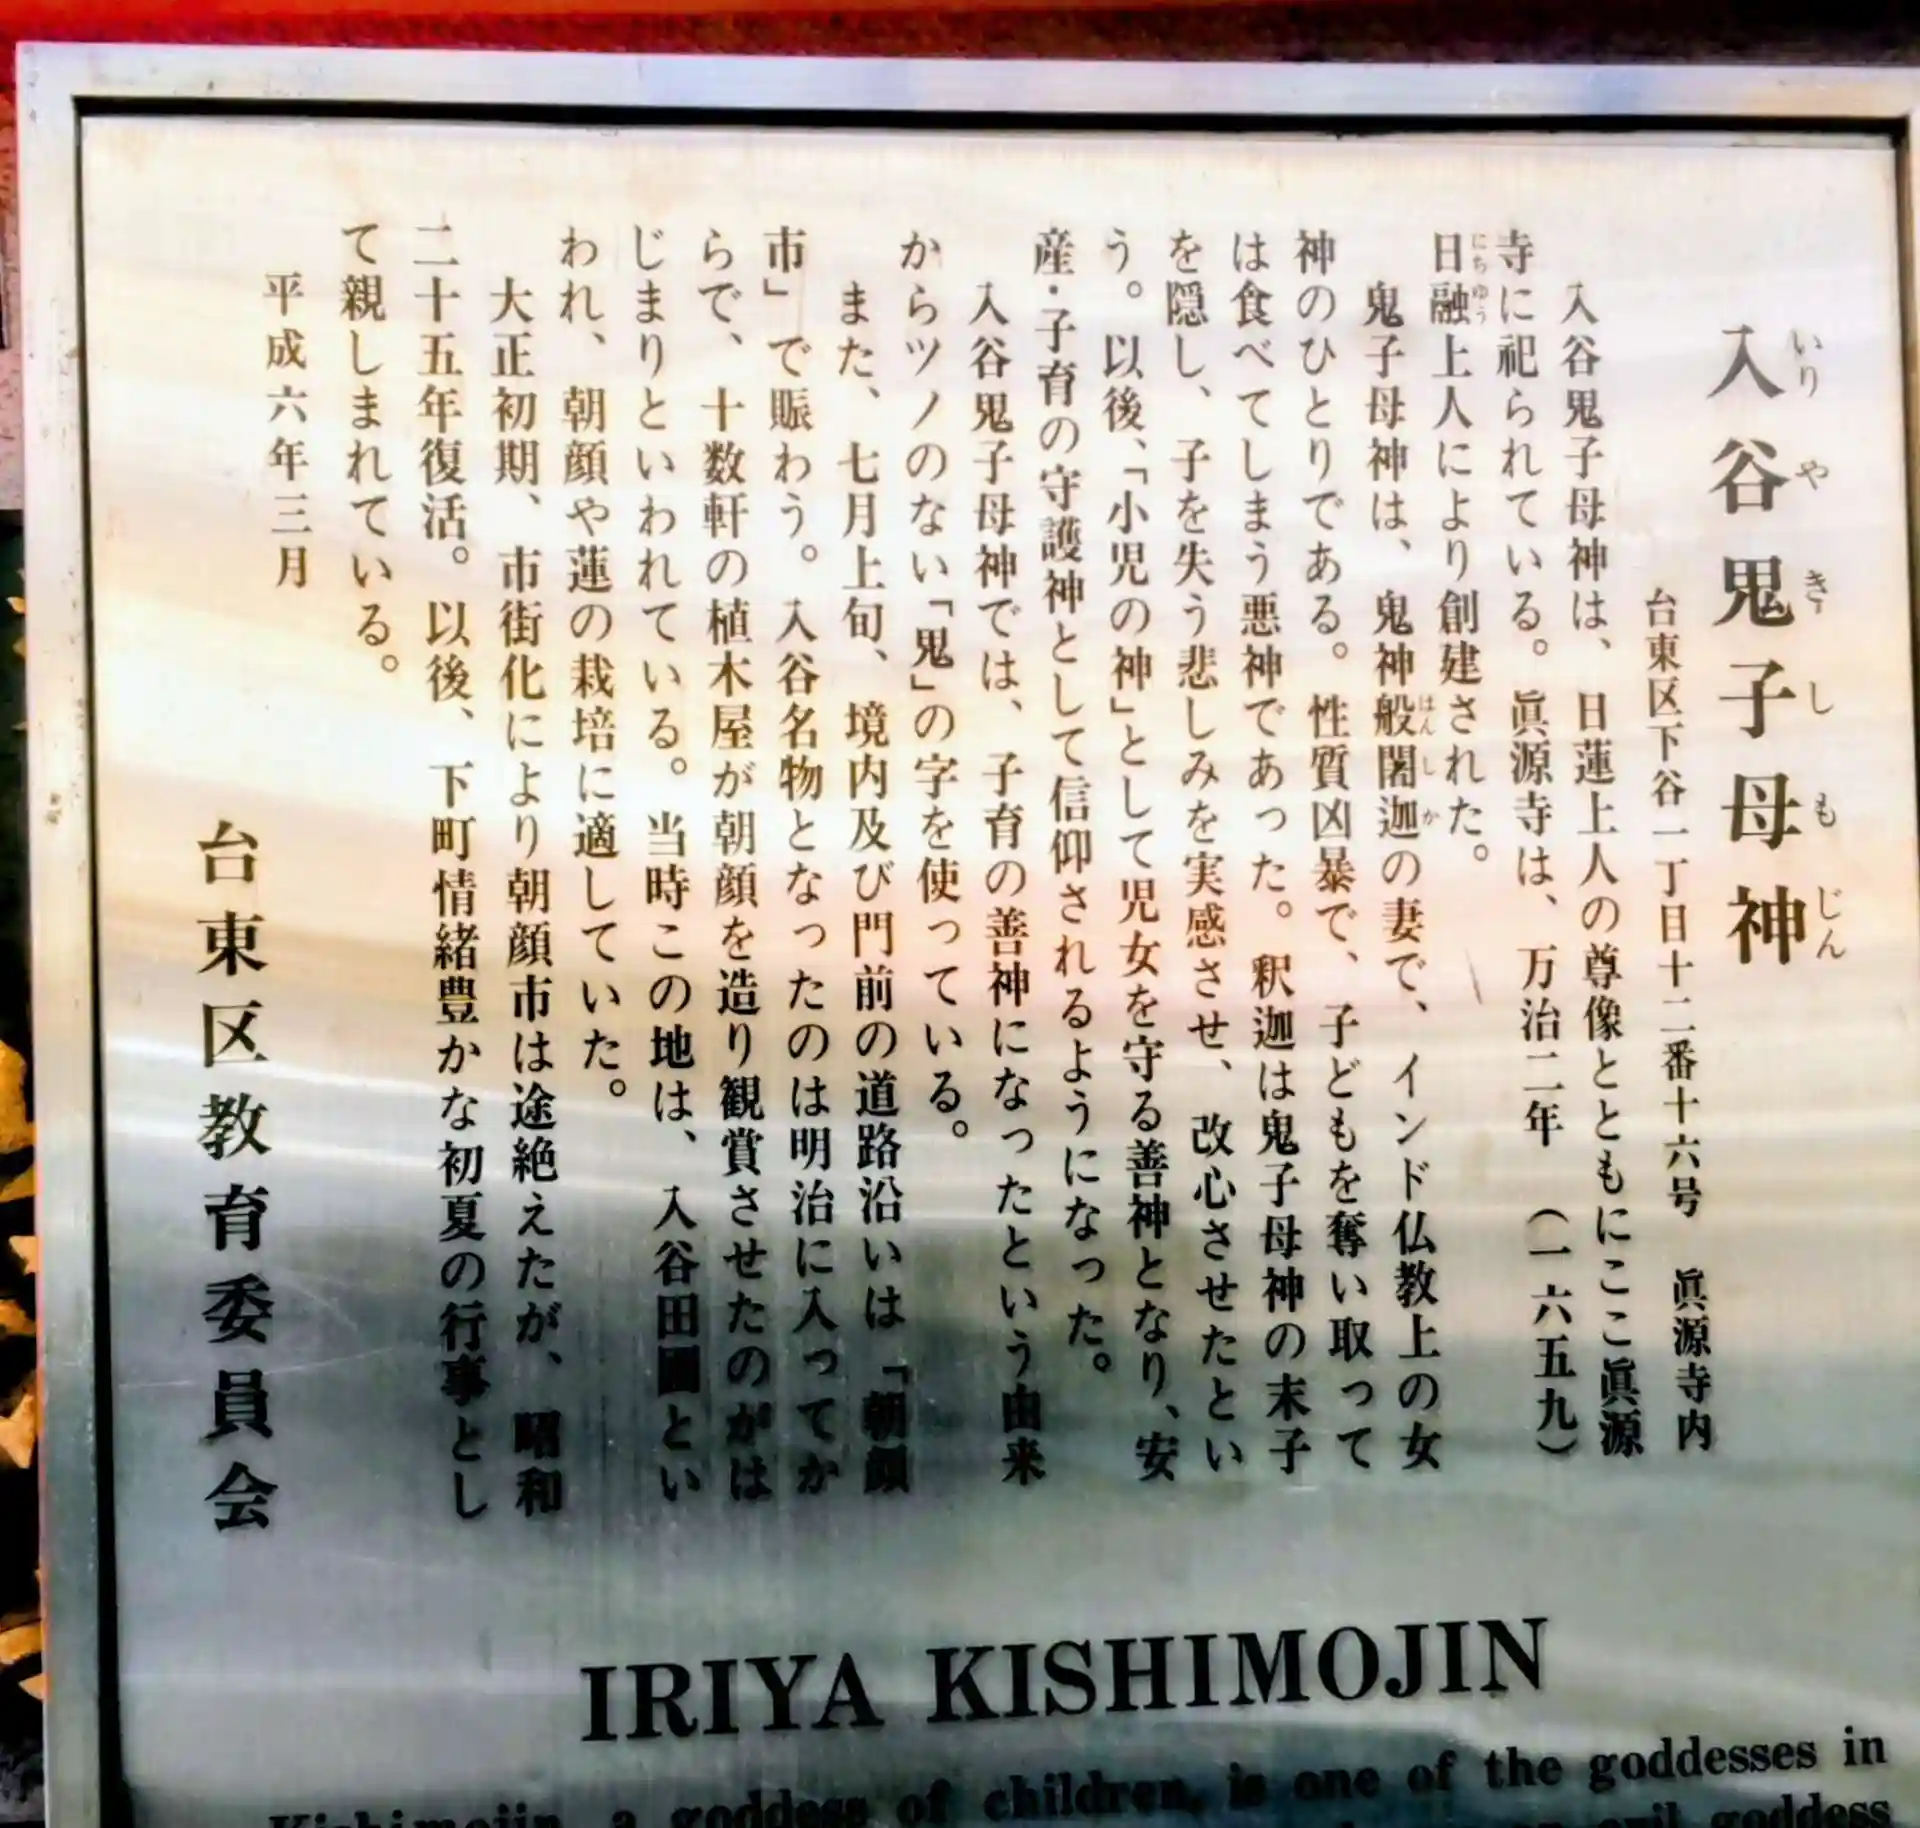 入谷鬼子母神
いりやきしもじん
台東区下谷一丁目十二番十六号　眞源寺内
入谷鬼子母神は、日蓮上人の尊像とともにここ眞源
寺に祀られている。眞源寺は、万治二年（一六五九）
日融上人により創建された。
にちゆう
鬼子母神は、鬼神般闍迦の妻で、インド仏教上の女
はんしか
神のひとりである。性質凶暴で、子どもを奪い取って
は食べてしまう悪神であった。釈迦は鬼子母神の末子
を隠し、子を失う悲しみを実感させ、改心させたとい
う。以後、「小児の神」として児女を守る善神となり、安
産・子育の守護神として信仰されるようになった。
入谷鬼子母神では、子育の善神になったという由来
からツノのない「鬼」の字を使っている。
また、七月上旬、境内及び門前の道路沿いは「朝顔
市」で賑わう。入谷名物となったのは明治に入ってか
らで、十数軒の植木屋が朝顔を造り観賞させたのがは
じまりといわれている。当時この地は、入谷田圃とい
われ、朝顔や蓮の栽培に適していた。
大正初期、市街化により朝顔市は途絶えたが、昭和
二十五年復活。以後、下町情緒豊かな初夏の行事とし
て親しまれている。
平成六年三月
台東区教育委員会
IRIYA KISHIMOJIN
Kishimojin, a goddess of children, is one of the goddesses in
evil goddess